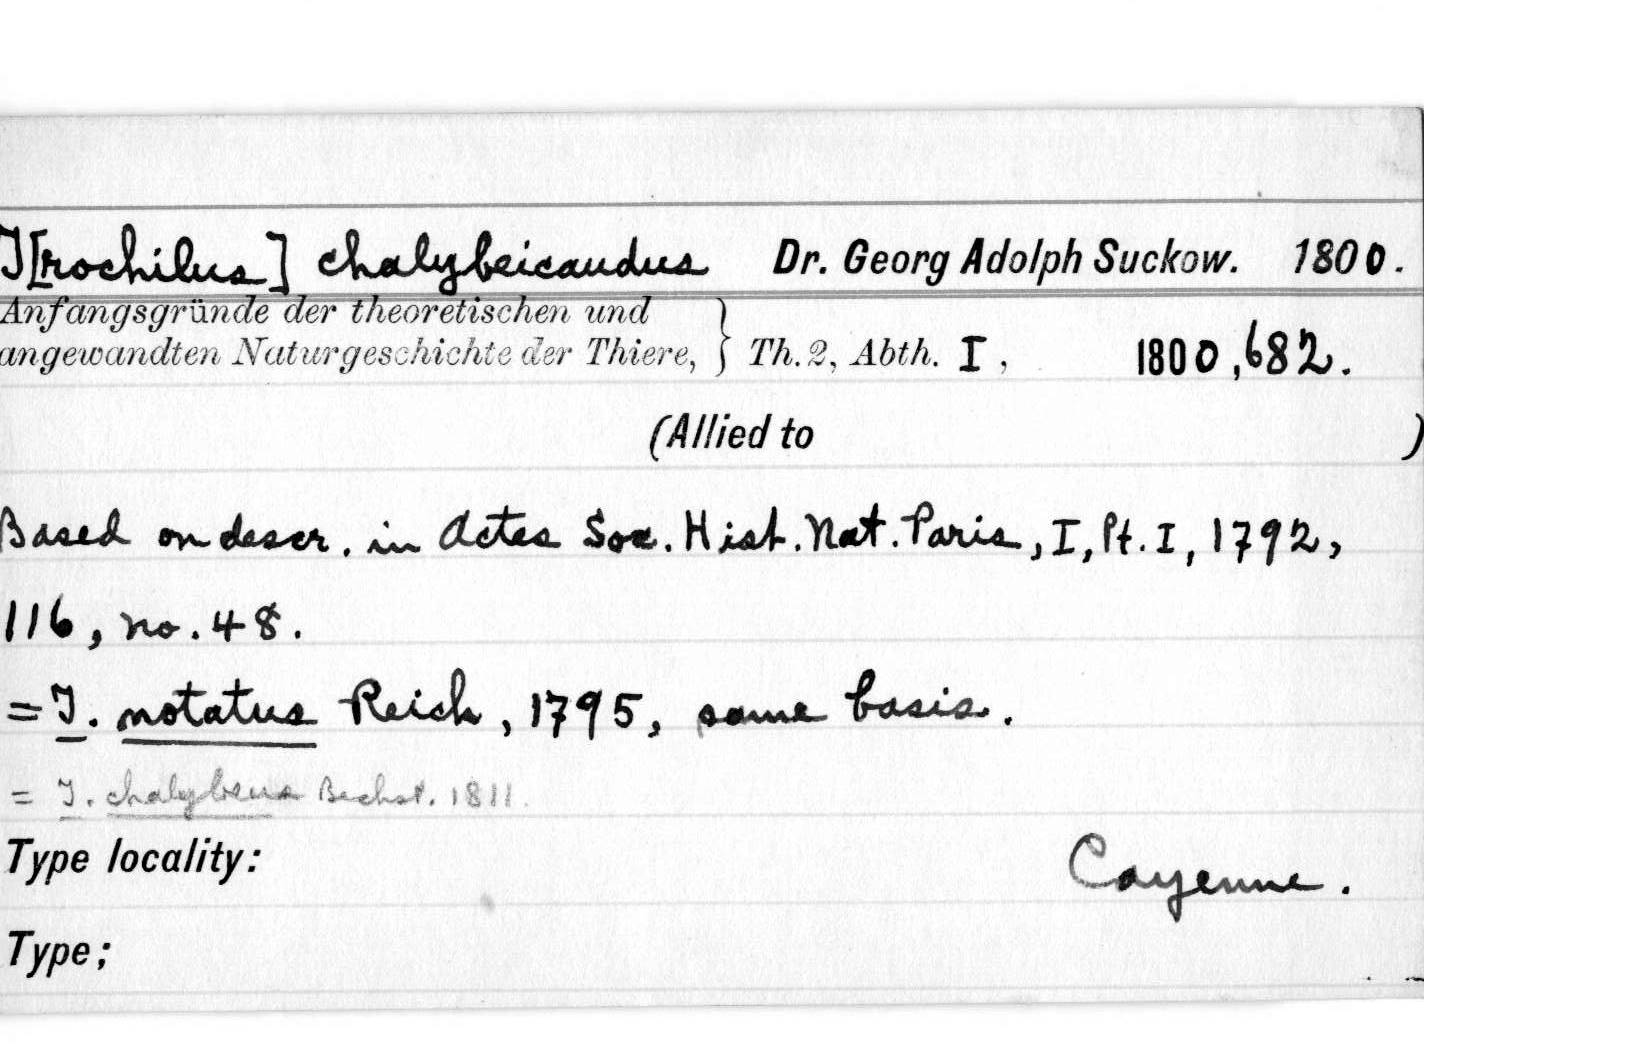 T[rochilus] chalybeicaudus Dr. Georg Adolph Suckow. 1800.
Anfangsgründe der theoretischen und
angewandten Naturgeschichte der Thiere, } Th. 2, Abth. I, 1800, 682.
(Allied to )
Based on descr. in Actes Soc. Hist. Nat. Paris, I, Pt. I, 1792,
116, no. 48.
= T. notatus Reich, 1795, same basis.
= T. chalybeus Bechst. 1811.
Type locality: Cayenne.
Type;